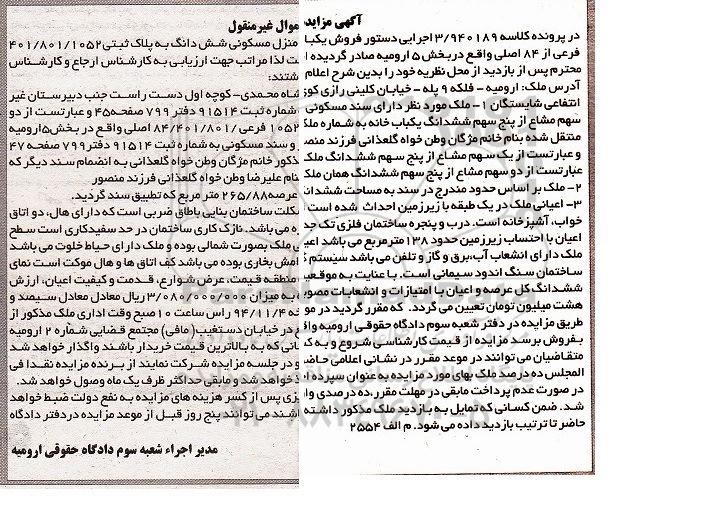 آگهی مزایده
موال غیرمنقول
در پرونده کلاسه ۳/۹۴۰۱۸۹ اجرایی دستور فروش یکبا
منزل مسکونی شش دانگ به پلاک ثبتی ۴۰۱/۸۰۱/۱۰۵۲
فرعی از ۸۴ اصلی واقع در بخش ۵ ارومیه صادر گردیده ا
ست لذا مراتب جهت ارزیابی به کارشناس ارجاع و کارشناس
محترم پس از بازدید از محل نظریه خود را بدین شرح اعلام
شتند:
آدرس ملک: ارومیه - فلکه ۹ پله - خیابان کلینی رازی کوی
شاه محمدی- کوچه اول دست راست جنب دبیرستان غیر
انتفاعی شایستگان ۱- ملک مورد نظر دارای سند مسکونی
شماره ثبت ۹۱۵۱۴ دفتر ۷۹۹ صفحه ۴۵ و عبارتست از دو
سهم مشاع از پنج سهم ششدانگ یکباب خانه به شماره ملک
۱۰۵۲ فرعی /۸۴/۴۰۱/۸۰۱ اصلی واقع در بخش ۵ ارومیه
منتقل شده بنام خانم مژگان وطن خواه گلعذانی فرزند منص
و سند مسکونی به شماره ثبت ۹۱۵۱۴ دفتر ۷۹۹ صفحه ۴۷
و عبارتست از یک سهم مشاع از پنج سهم ششدانگ ملک
ذکور خانم مژگان وطن خواه گلعذانی به انضمام سند دیگر که
عبارتست از دو سهم مشاع از پنج سهم ششدانگ همان ملک
بنام علیرضا وطن خواه گلعذانی فرزند منصور
۲- ملک بر اساس حدود مندرج در سند به مساحت ششدان
عرصه ۲۶۵/۸۸ متر مربع که تطبیق سند گردید.
۳- اعیانی ملک در یک طبقه با زیرزمین احداث شده است
شکلت ساختمان بنایی باطاق ضربی است که دارای هال، دو اتاق
خواب، آشپزخانه است. درب و پنجره ساختمان فلزی تک جد
ره می باشد. نازک کاری ساختمان در حد سفیدکاری است سطح
اعیان با احتساب زیرزمین حدود ۱۳۸ مترمربع می باشد اعی
نی ملک بصورت شمالی بوده و ملک دارای حیاط خلوت می باشد
ملک دارای انشعاب آب، برق و گاز و تلفن می باشد سیستم گ
رمایش بخاری بوده می باشد کف اتاق ها و هال موکت است نمای
ساختمان سنگ اندود سیمانی است. با عنایت به موقعی
منطقه قیمت، عرض شوارع، قدمت و کیفیت اعیان، ارزش
ششدانگ کل عرصه و اعیان با امتیازات و انشعابات منصو
به میزان ۳/۰۸۰/۰۰۰/۰۰۰ ریال معادل سیصد و
هشت میلیون تومان تعیین می گردد. که مقرر گردید در مو
خه ۹۴/۱۱/۴ راس ساعت ۱۰ صبح وقت اداری ملک مذکور از
طریق مزایده در دفتر شعبه سوم دادگاه حقوقی ارومیه واق
در خیابان دستغیب (مافی) مجتمع قضایی شماره ۲ ارومیه
بفروش برسد مزایده از قیمت کارشناسی شروع و به ک
انی که به بالاترین قیمت خریدار باشند واگذار خواهد شد
متقاضیان می توانند در موعد مقرر در نشانی اعلامی حاض
و در جلسه مزایده شرکت نمایند از برنده مزایده نقدا فی
المجلس ده درصد ملک بهای مورد مزایده به عنوان سپرده ا
خذ خواهد شد و مابقی حداکثر ظرف یک ماه وصول خواهد شد.
در صورت عدم پرداخت مابقی در مهلت مقرر، ده درصدی وا
یزی پس از کسر هزینه های مزایده به نفع دولت ضبط خواهد
شد. ضمن کسانی که تمایل به بازدید ملک مذکور داشته
باشند می توانند پنج روز قبل از موعد مزایده در دفتر دادگاه
حاضر تا ترتیب بازدید داده می شود. م الف ۲۵۵۴
مدیر اجراء شعبه سوم دادگاه حقوقی ارومیه